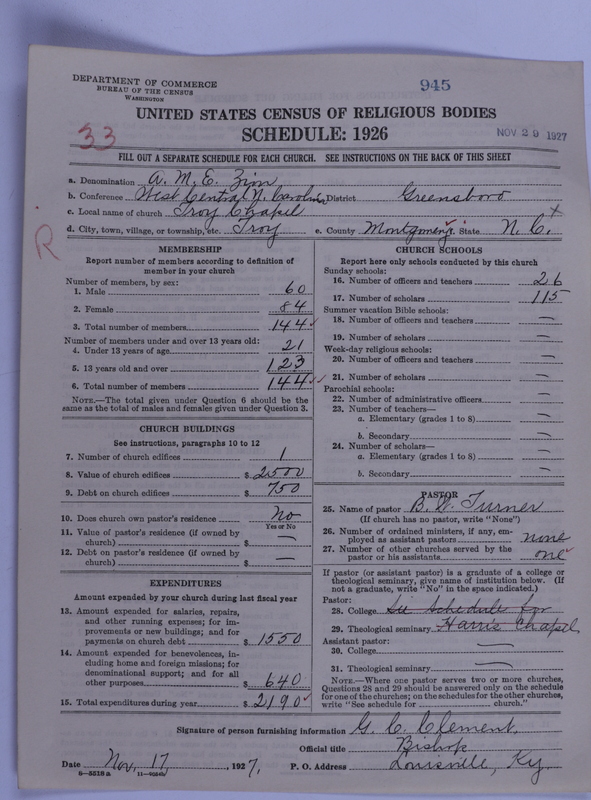 DEPARTMENT OF COMMERCE
BUREAU OF THE CENSUS
WASHINGTON
945
UNITED STATES CENSUS OF RELIGIOUS BODIES
SCHEDULE: 1926
33
NOV 29 1927
FILL OUT A SEPARATE SCHEDULE FOR EACH CHURCH. SEE INSTRUCTIONS ON THE BACK OF THIS SHEET
a. Denomination A. M. E. Zion
b. Conference West Central N. Carolina District Greensboro
c. Local name of church Troy Chapel
d. City, town, village, or township, etc. Troy e. County Montgomery State N. C. x
R
MEMBERSHIP
Report number of members according to definition of
member in your church
Number of members, by sex:
1. Male 60
2. Female 84
3. Total number of members 144 ✓
Number of members under and over 13 years old:
4. Under 13 years of age 21
5. 13 years old and over 123
6. Total number of members 144 ✓✓
NOTE.—The total given under Question 6 should be the
same as the total of males and females given under Question 3.
CHURCH BUILDINGS
See instructions, paragraphs 10 to 12
7. Number of church edifices 1
8. Value of church edifices $ 2500
9. Debt on church edifices $ 750
10. Does church own pastor's residence No
Yes or No
11. Value of pastor's residence (if owned by
church) $ —
12. Debt on pastor's residence (if owned by
church) $ —
EXPENDITURES
Amount expended by your church during last fiscal year
13. Amount expended for salaries, repairs,
and other running expenses; for im-
provements or new buildings; and for
payments on church debt $ 1550
14. Amount expended for benevolences, in-
cluding home and foreign missions; for
denominational support; and for all
other purposes $ 640
15. Total expenditures during year $ 2190 ✓
CHURCH SCHOOLS
Report here only schools conducted by this church
Sunday schools:
16. Number of officers and teachers 26
17. Number of scholars 115
Summer vacation Bible schools:
18. Number of officers and teachers —
19. Number of scholars —
Week-day religious schools:
20. Number of officers and teachers —
21. Number of scholars —
Parochial schools:
22. Number of administrative officers —
23. Number of teachers—
a. Elementary (grades 1 to 8) —
b. Secondary —
24. Number of scholars—
a. Elementary (grades 1 to 8) —
b. Secondary —
PASTOR
25. Name of pastor B. W. Turner
(If church has no pastor, write "None")
26. Number of ordained ministers, if any, em-
ployed as assistant pastors none
27. Number of other churches served by the
pastor or his assistants one ✓
If pastor (or assistant pastor) is a graduate of a college or
theological seminary, give name of institution below. (If
not a graduate, write "No" in the space indicated.)
Pastor:
28. College See Schedule for
29. Theological seminary Harris Chapel
Assistant pastor:
30. College —
31. Theological seminary —
NOTE.—Where one pastor serves two or more churches,
Questions 28 and 29 should be answered only on the schedule
for one of the churches; on the schedules for the other churches,
write "See schedule for church."
Signature of person furnishing information G. C. Clement,
Official title Bishop
Date Nov, 17, 1927, P. O. Address Louisville, Ky.
8—5518 a